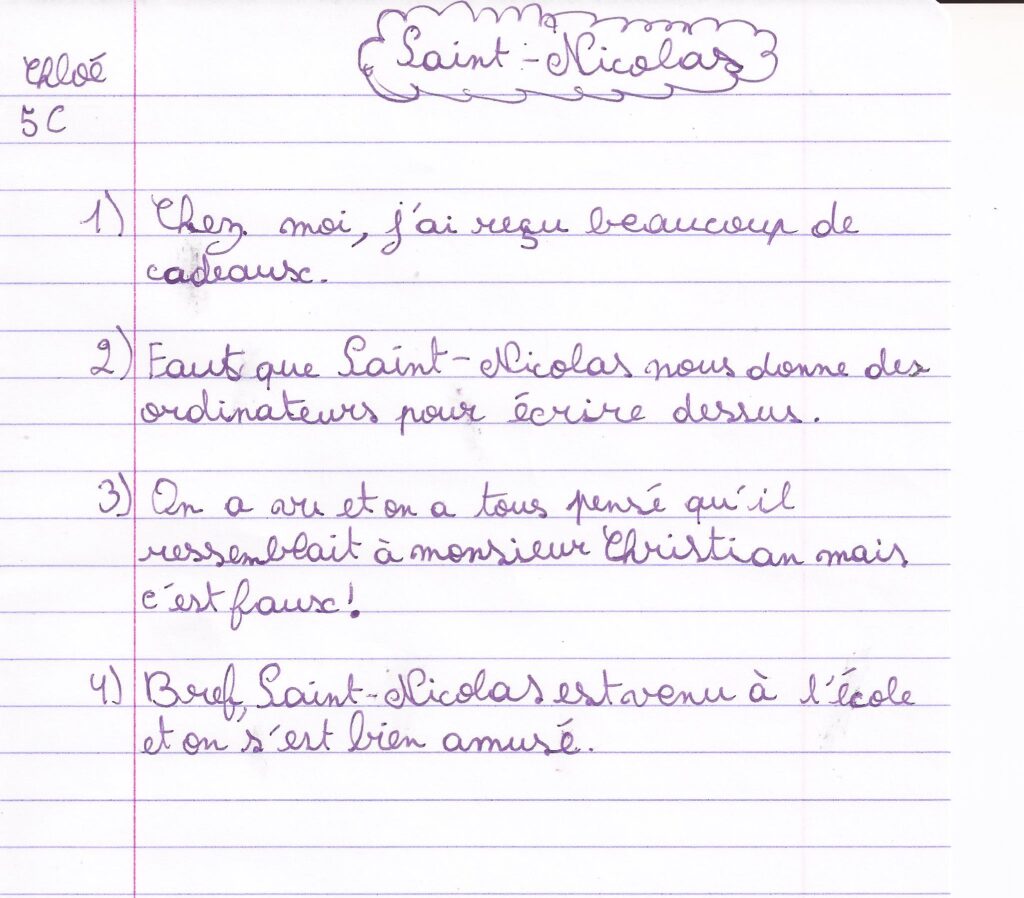 Saint-Nicolas
Chloé
5C
1) Chez moi, j'ai reçu beaucoup de
cadeaux.
2) Faut que Saint-Nicolas nous donne des
ordinateurs pour écrire dessus.
3) On a vu et on a tous pensé qu'il
ressemblait à monsieur Christian mais
c'est faux!
4) Bref, Saint-Nicolas est venu à l'école
et on s'est bien amusé.